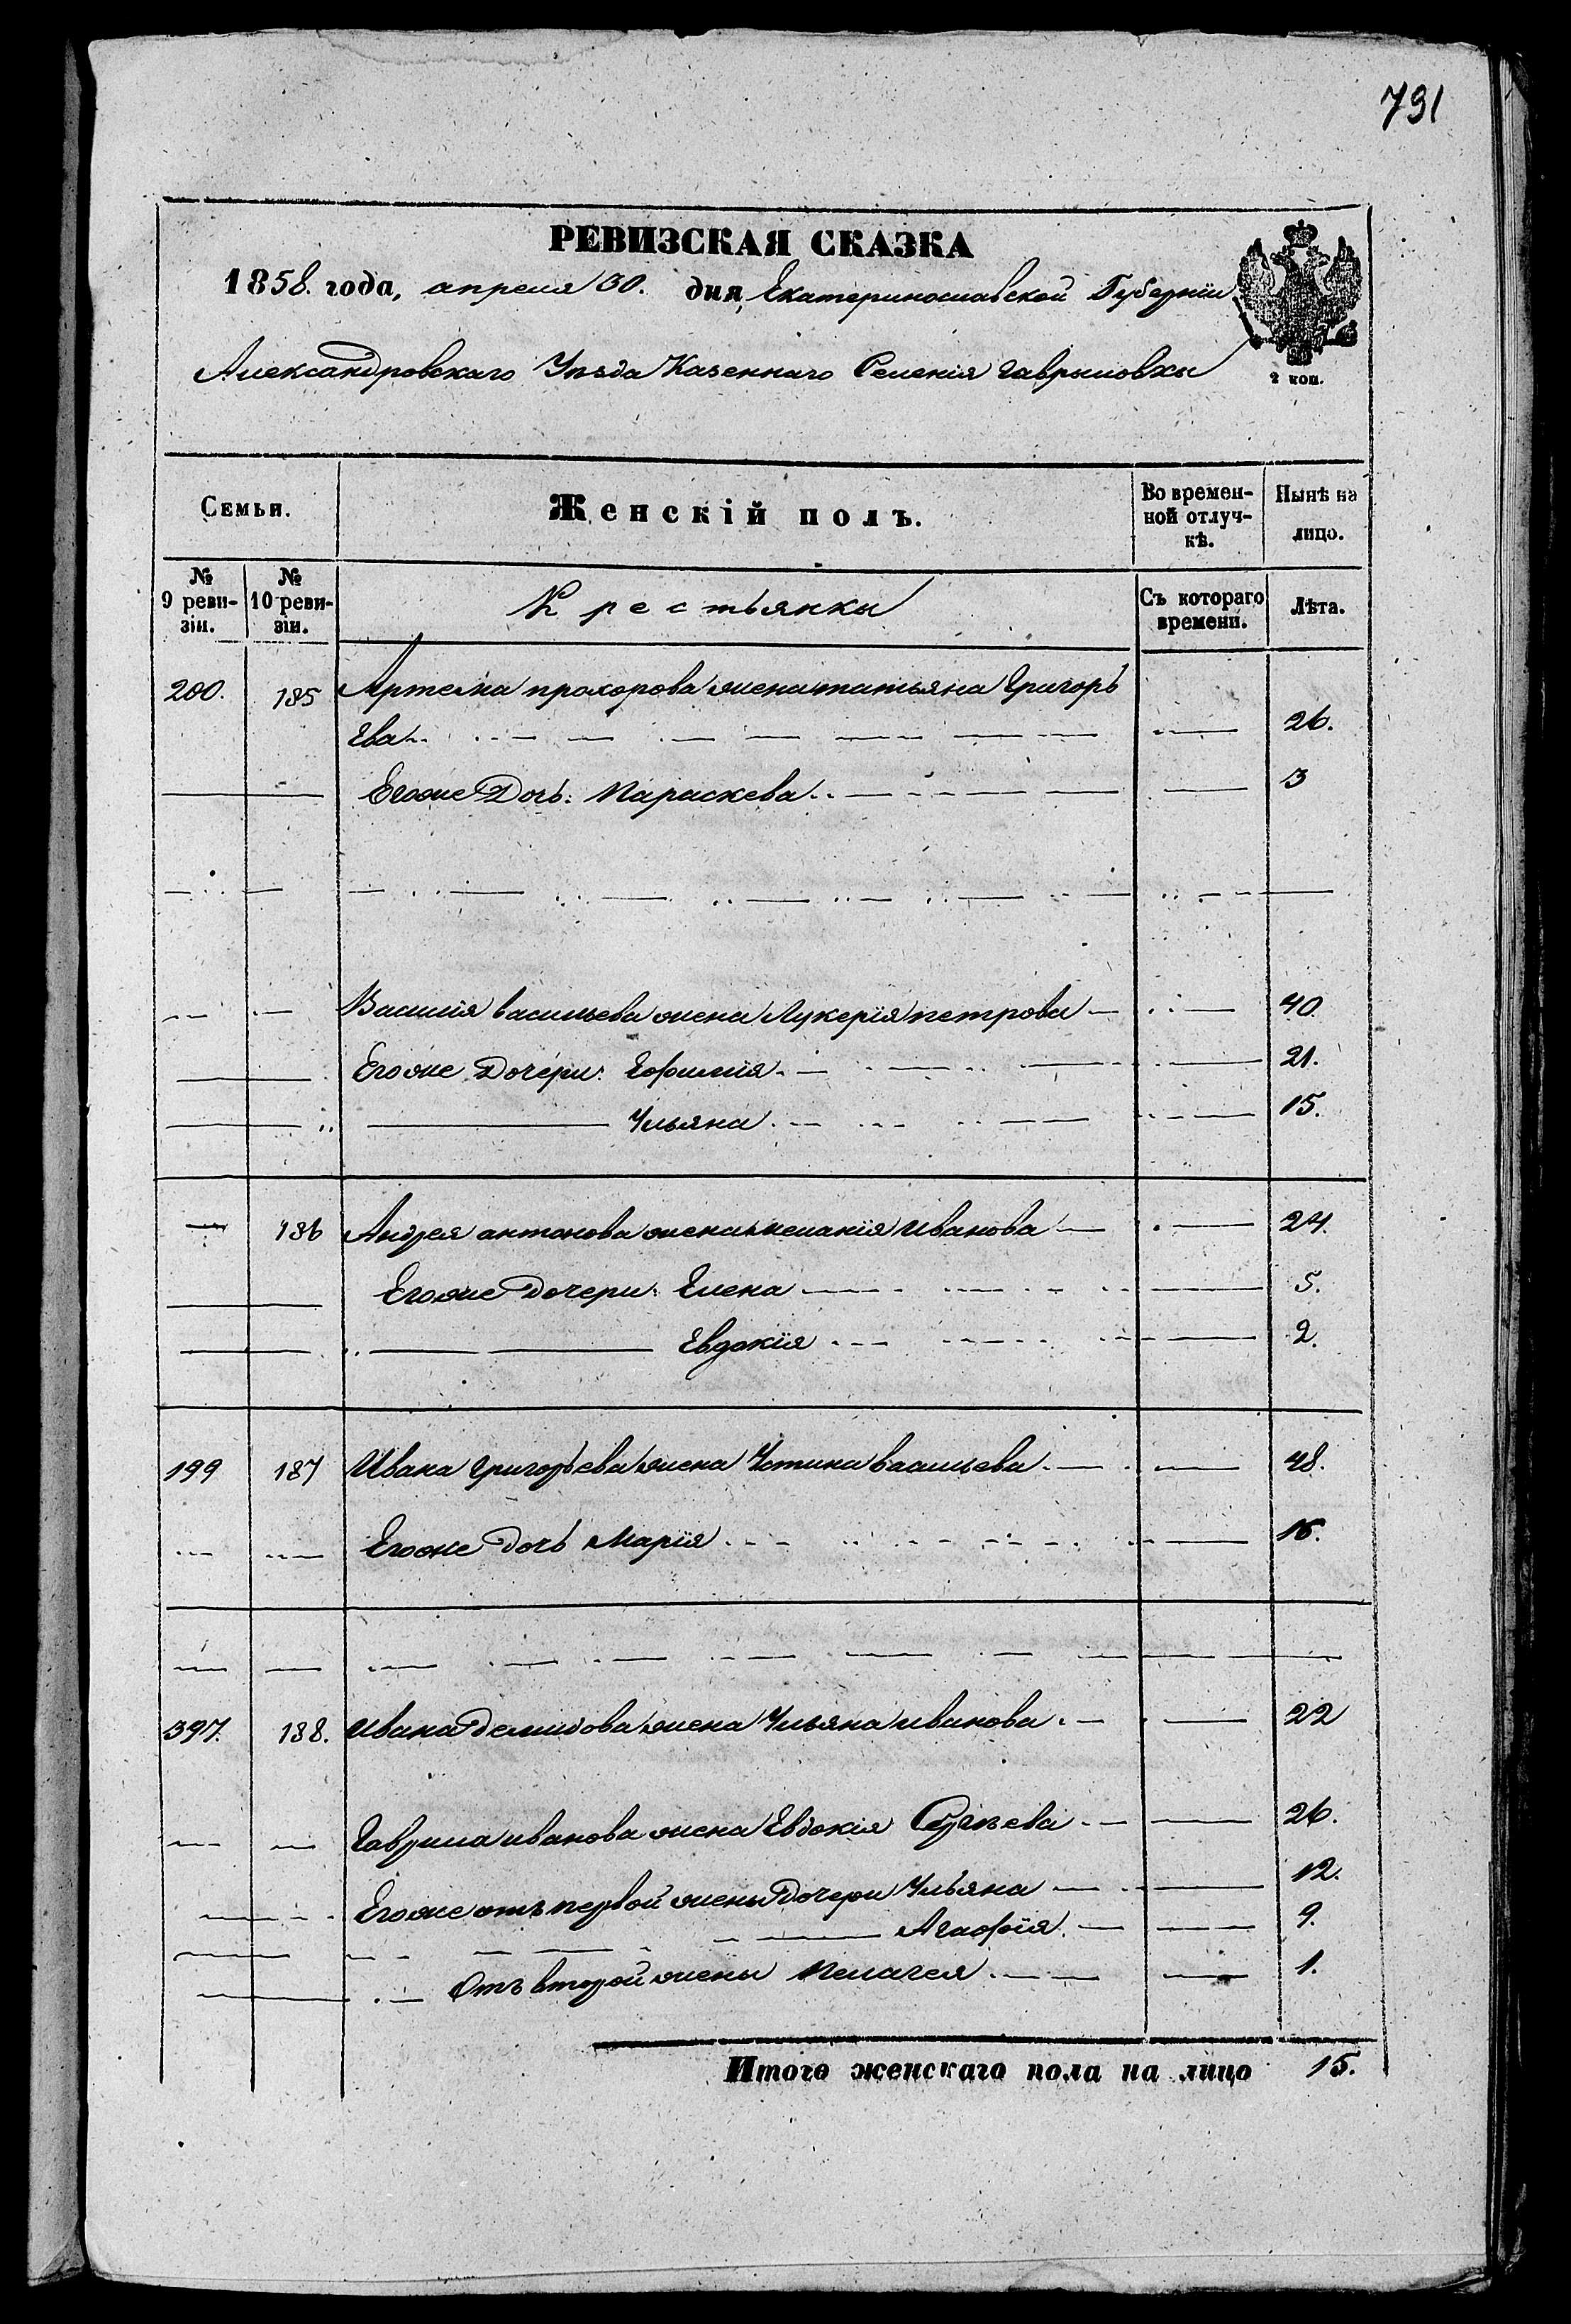 791
РЕВИЗСКАЯ СКАЗКА
1858. года, апреля 30. дня, Екатеринославской Губерніи
Александровскаго Уѣзда Казеннаго Селенія Гаврыловкы
2 коп.
Семьи.
Женскій полъ.
Во времен-
ной отлуч-
кѣ.
Нынѣ на
лицо.
№
9 реви-
зіи.
№
10 реви-
зіи.
Крестьянкы
Съ котораго
времени.
Лѣта.
200. 185 Артема прохорова жена татьяна Григорь
Ева 26.
Егоже Дочь: Параскева 3
Василія васильева жена Лукерія петрова 40
Егоже Дочери: Гофимія 21.
Ульяна 15.
186 Андрея антонова жена мелания Иванова 24.
Егоже Дочери: Елена 5.
Евдокія 2.
199 187 Ивана Григорьева жена Устина васильева 48.
Егоже дочь Марія 16.
397. 188. Ивана Демидова жена Ульяна иванова 22
Гаврила иванова жена Евдокія Сергѣева 26.
Егоже отъ первой жены Дочери Ульяна 12.
Агафія 9.
Отъ второй жены Пелагея 1.
Итого женскаго пола на лицо 15.